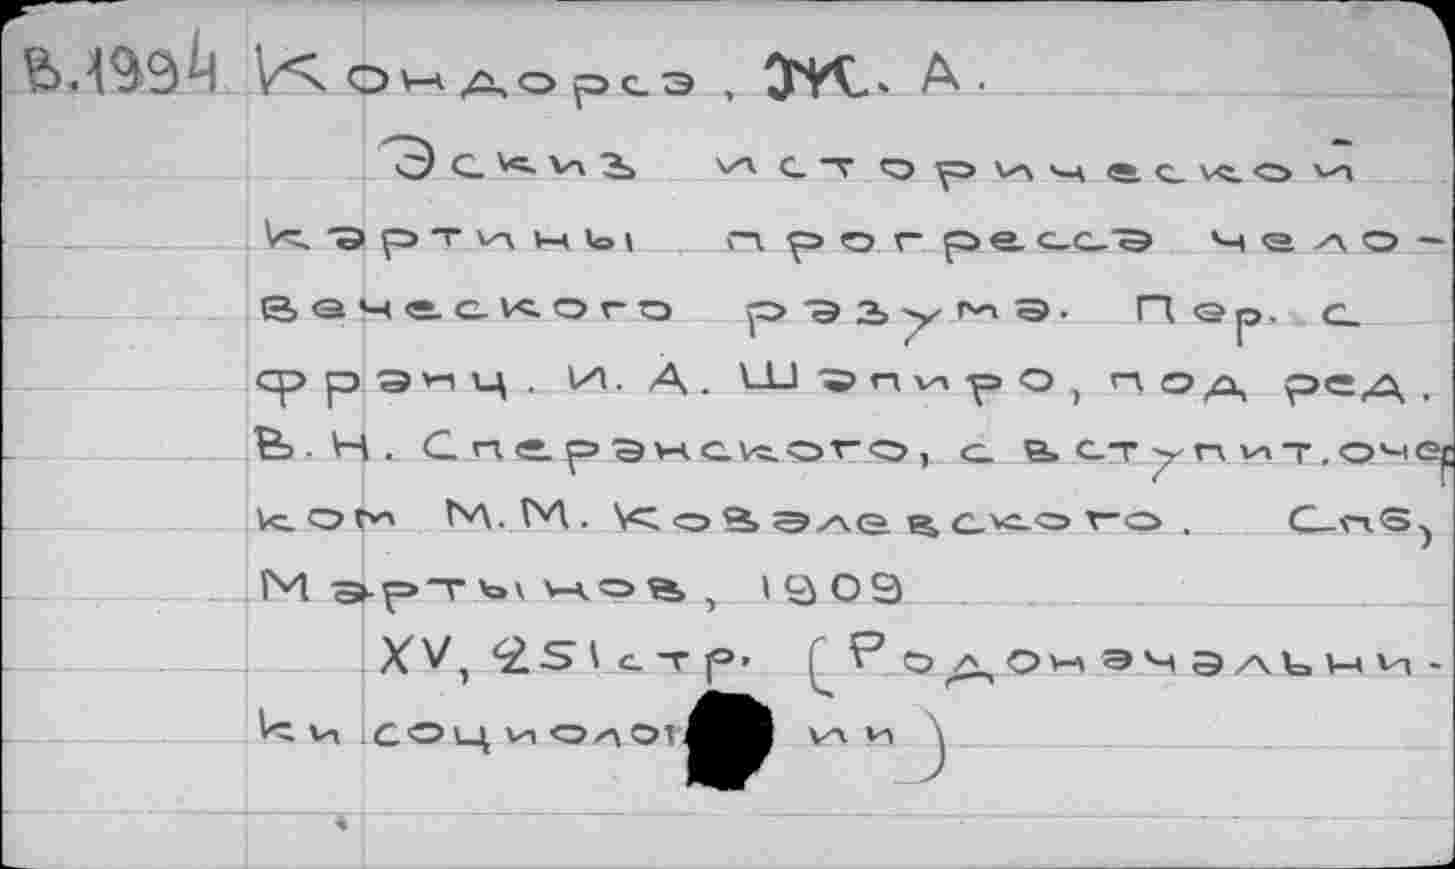 В.1994 Кондорсэ, Ж. А.
Эскиз исторической
картины прогресса чело-
веческого разума. Пер. с
франц. И. А. Шапиро, под ред.
В. Н. Сперанского, с вступит. очер
ком М. М. Ковалевского. Спб,
Мартынов, 1909
XV, 251 стр. (Родоначальни-
ки социологии)